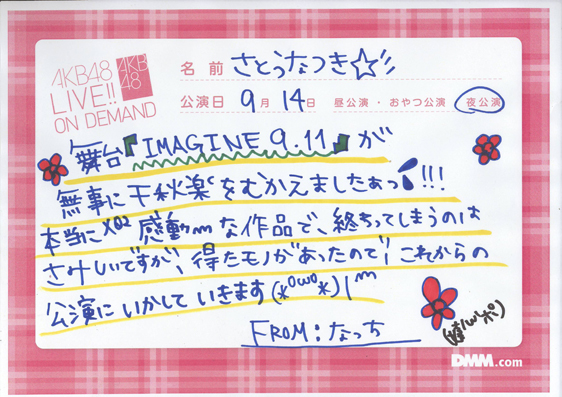 AKB48
LIVE!!
ON DEMAND
AKB
48
名前 さとうなつき☆彡
公演日 9月14日 昼公演・おやつ公演 夜公演
舞台『IMAGINE 9.11』が
無事に千秋楽をむかえましたぁっ!!!
本当に×02 感動mな作品で、終わってしまうのは
さみしいですが、得たモノがあったので、これからの
公演にいかしていきます(*°ω°*)
FROM:なっち
DMM.com